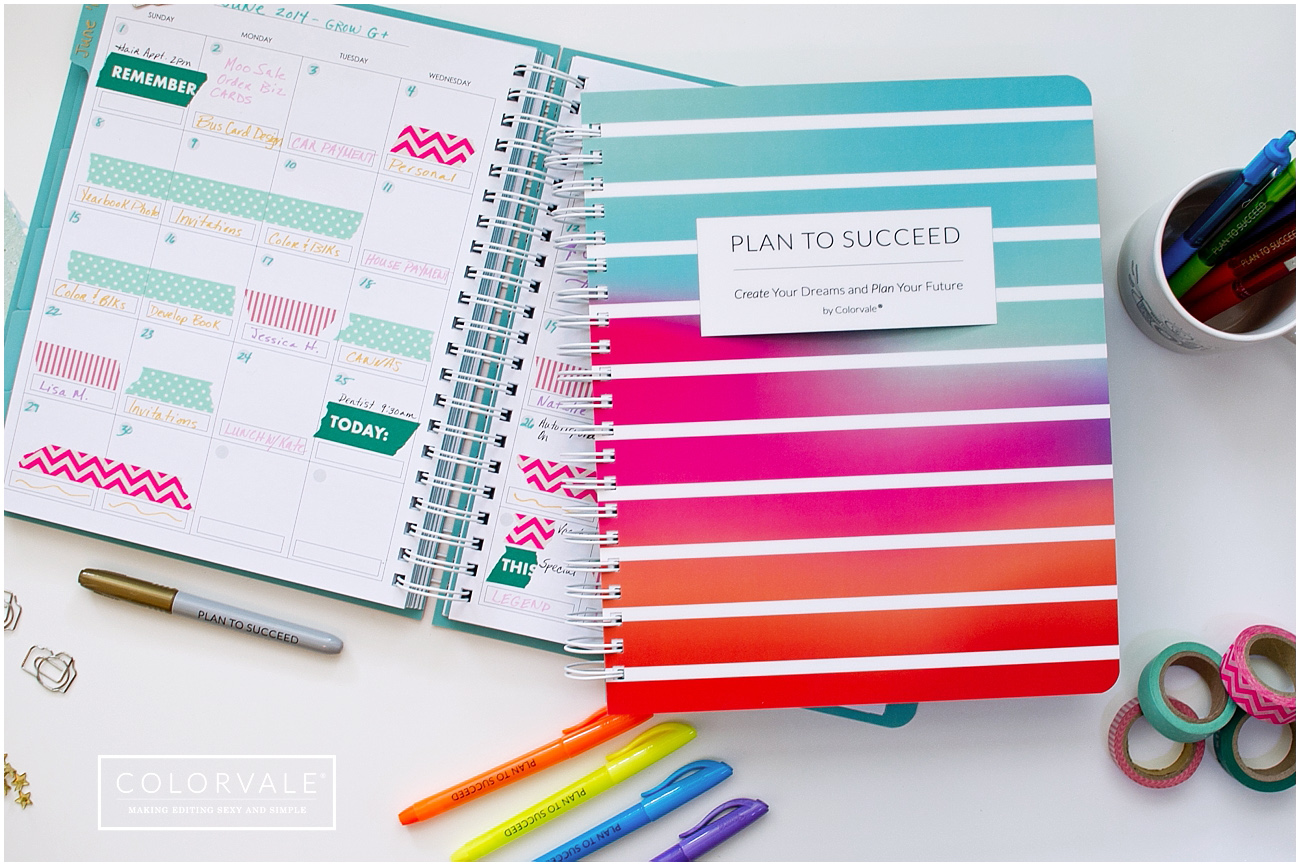 JUNE 2014 - GROW G+
SUNDAY
MONDAY
TUESDAY
WEDNESDAY
June
1
Hair Appt. 2pm
REMEMBER
2
Moo Sale
Order Biz
CARDS
Bus Card Design
3
CAR PAYMENT
4
Personal
8
Yearbook Photo
9
Invitations
10
Color & Blks
11
HOUSE PAYMENT
15
Color & Blks
16
Develop Book
17
Jessica H.
18
CANVAS
22
Lisa M.
23
Invitations
24
LUNCH w/Kate
25
Dentist 9:30am
TODAY:
29
30
19
Natalie
26
THIS
Special
LEGEND
PLAN TO SUCCEED
Create Your Dreams and Plan Your Future
by Colorvale®
PLAN TO SUCCEED
PLAN TO SUCCEED
PLAN TO SUCCEED
PLAN TO SUCCEED
PLAN TO SUCCEED
PLAN TO SUCCEED
PLAN TO SUCCEED
COLORVALE®
MAKING EDITING SEXY AND SIMPLE